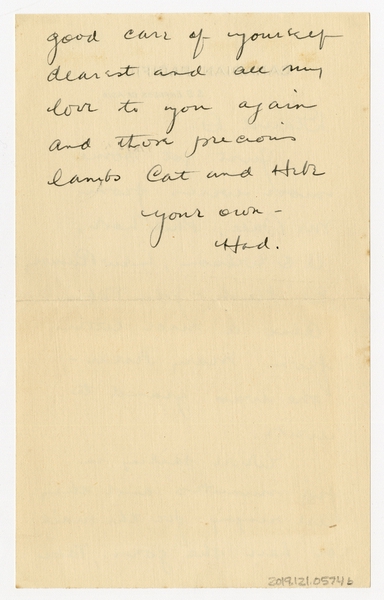 good care of yourself
dearest and all my
love to you again
and those precious
lambs Cat and Hebe
your own -
Had.
2019.121.0574b